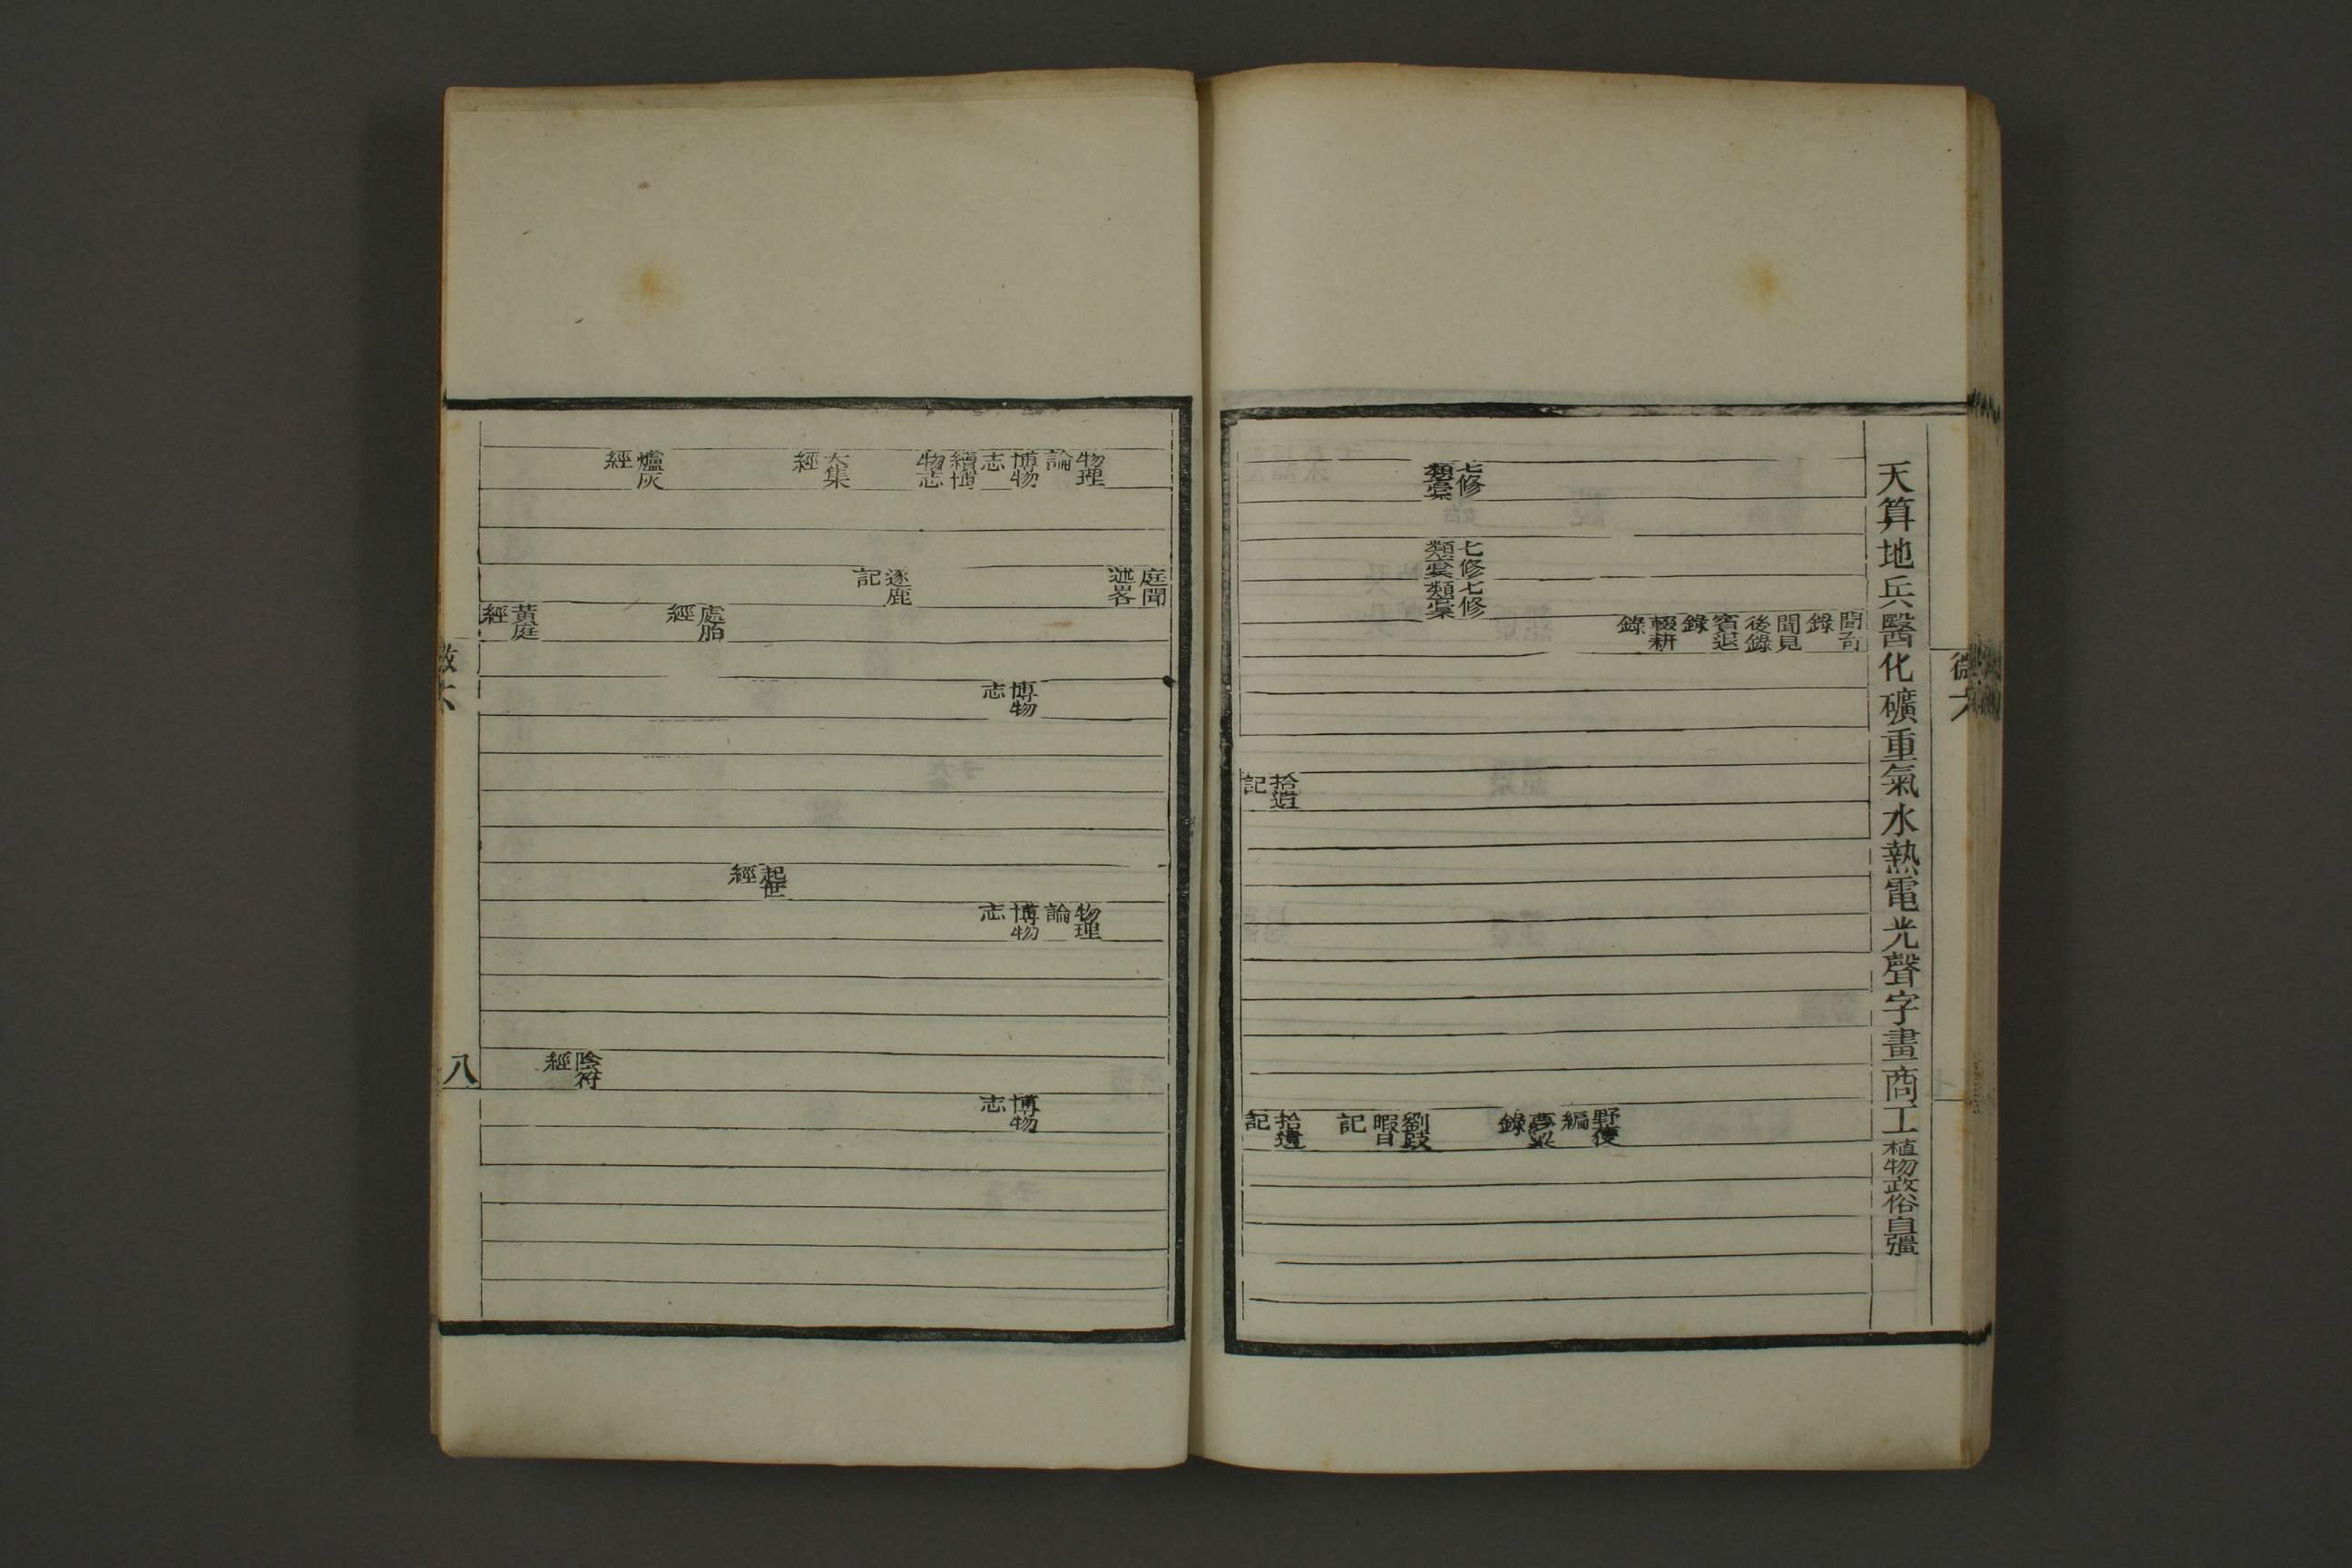 天算地兵醫化礦重氣水熱電光聲字畫商工植物政俗自彊
聞奇錄
聞見後錄
賓退錄
輟耕錄
野獲編
夢梁錄
七修類稾
七修類稾
七修類稾
劉跂暇日記
拾遺記
拾遺記
庭聞述畧
物理論
物理論
博物志
博物志
博物志
博物志
續博物志
逐鹿記
大集經
起世經
處胎經
爐灰經
陰符經
黃庭經
八